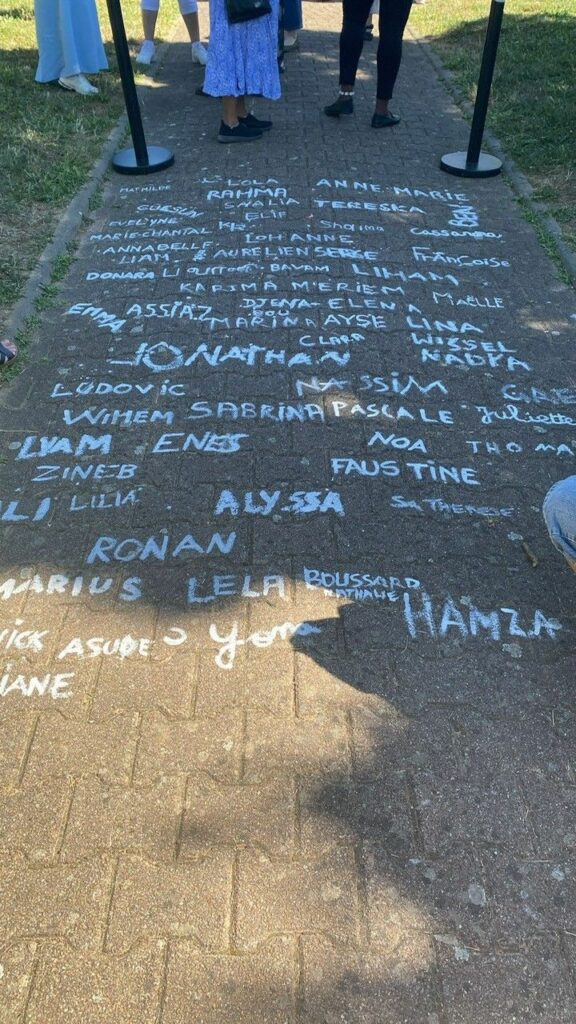 MATHILDE LOLA ANNE-MARIE
RAHMA
SHALIA TERESICA
EVELYNE ELIF
MARIE-CHANTAL Shaima Cassandra
JOHANNE
ANNABELLE
LIAM AURELIEN SERGE Françoise
DONARA BAYAM LIHAM
KARIMA M'ERIEM MAËLLE
EMMA ASSIAZ DJENA ELENA
MARINA AYSE LINA
CLARA WISSEL
JONATHAN NADKA
LUDOVIC NASSIM GAE
WIHEM SABRINA PASCALE Juliette
LYAM ENES NOA THOMA
ZINEB FAUSTINE
LI LILIA ALYSSA SA THERESE
RONAN
MARIUS LELA BOUSSARD
NATHALIE HAMZA
ICK ASUDE
IANE